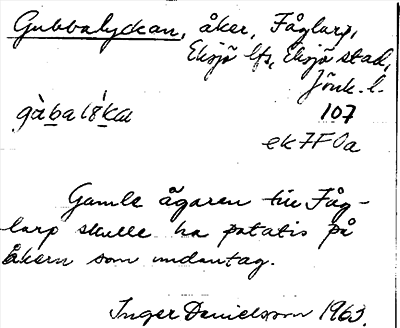 Gubbalyckan, åker, Fåglarp,
Eksjö lfs, Eksjö stad,
Jönk. l.
107
ek7F0a
Gamle ägaren till Fåg-
larp skulle ha potatis på
åkern som undantag.
Inger Danielsson 1963.